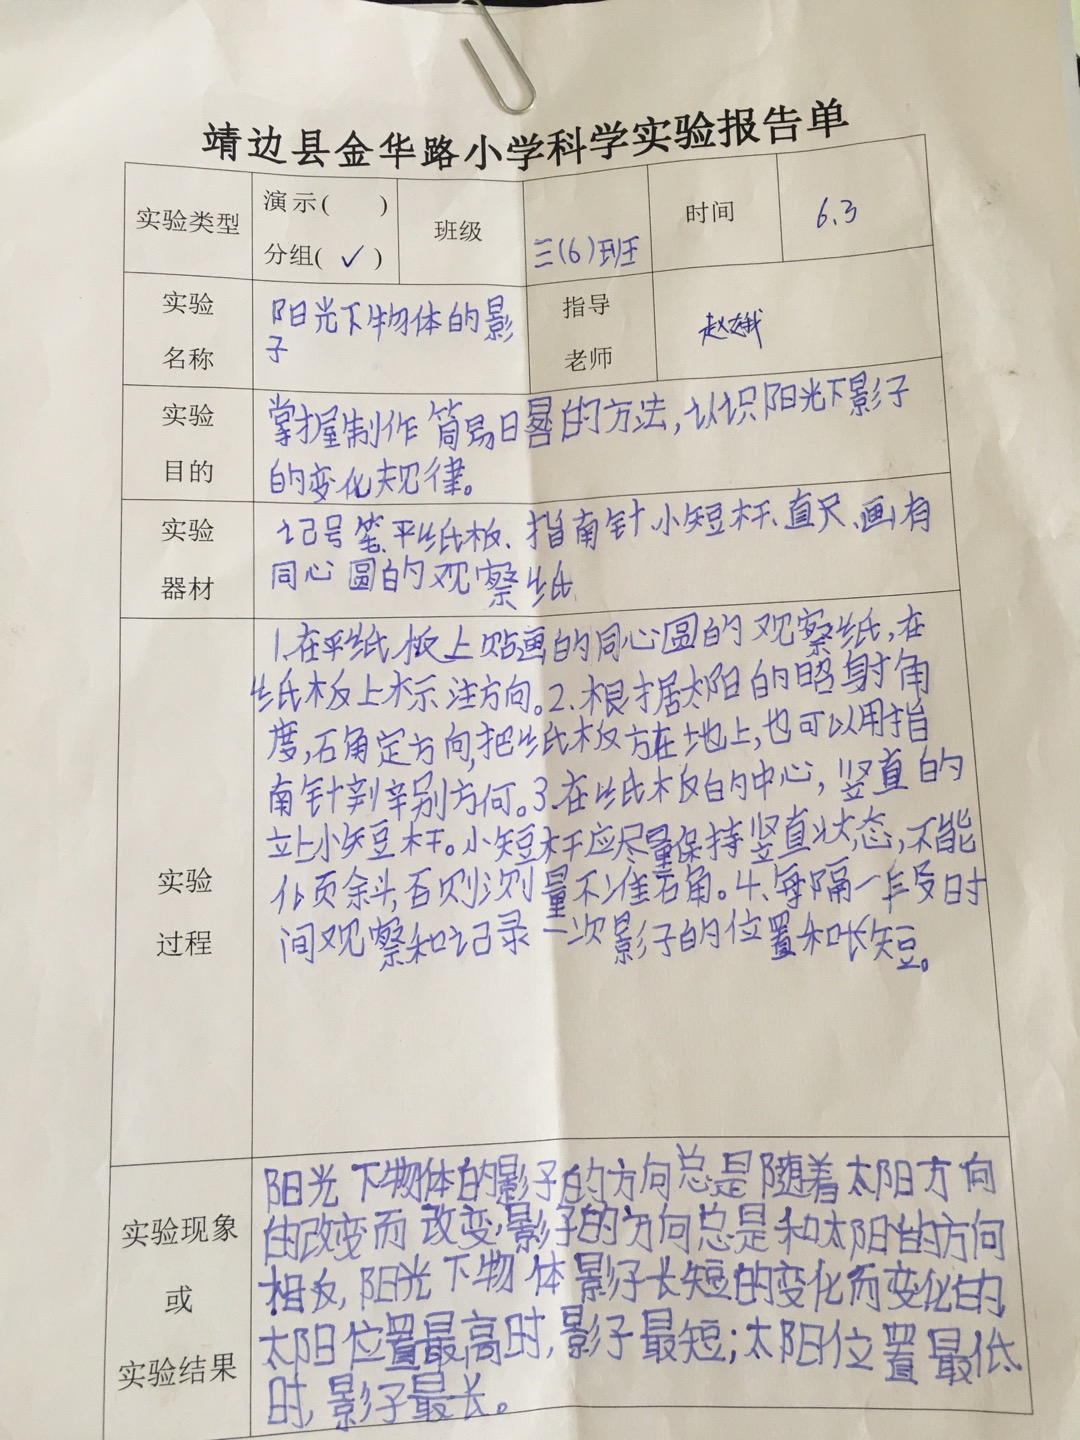 靖边县金华路小学科学实验报告单
实验类型
演示(　　)
分组( ✓ )
班级
三(6)班
时间
6.3
实验
名称
阳光下物体的影
子
指导
老师
赵
实验
目的
掌握制作简易日晷的方法,认识阳光下影子
的变化规律。
实验
器材
记号笔、平纸板、指南针、小短杆、直尺、画有
同心圆的观察纸
实验
过程
1.在平纸板上贴画的同心圆的观察纸,在
纸板上标示注方向。2.根据太阳的照射角
度,石角定方向,把纸板方在地上,也可以用指
南针判辛别方向。3.在纸板的中心,竖直的
立上小短杆。小短杆应尽量保持竖直状态,不能
倾余斗,否则测量不准石角。4、每隔一段时
间观察和记录一次影子的位置和长短。
实验现象
或
实验结果
阳光下物体的影子的方向总是随着太阳方向
的改变而改变,影子的方向总是和太阳的方向
相反,阳光下物体影子长短的变化而变化的,
太阳位置最高时,影子最短;太阳位置最低
时,影子最长。